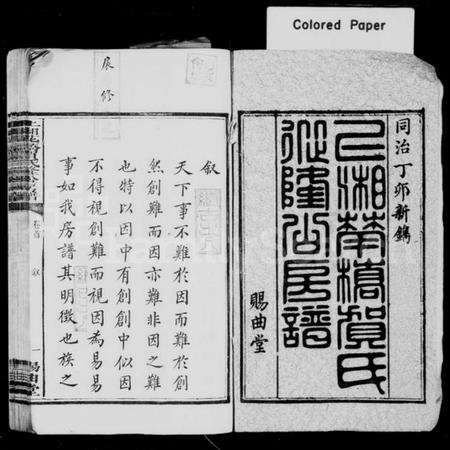 Colored Paper
同治丁卯新鐫
上湘華橋賀氏
從隆公房譜
賜曲堂
展修
叙
天下事不難於因而難於創
然創難而因亦難非因之難
也特以因中有創創中似因
不得視創難而視因為易易
事如我房譜其明徵也族之
卷首
叙
一
賜曲堂